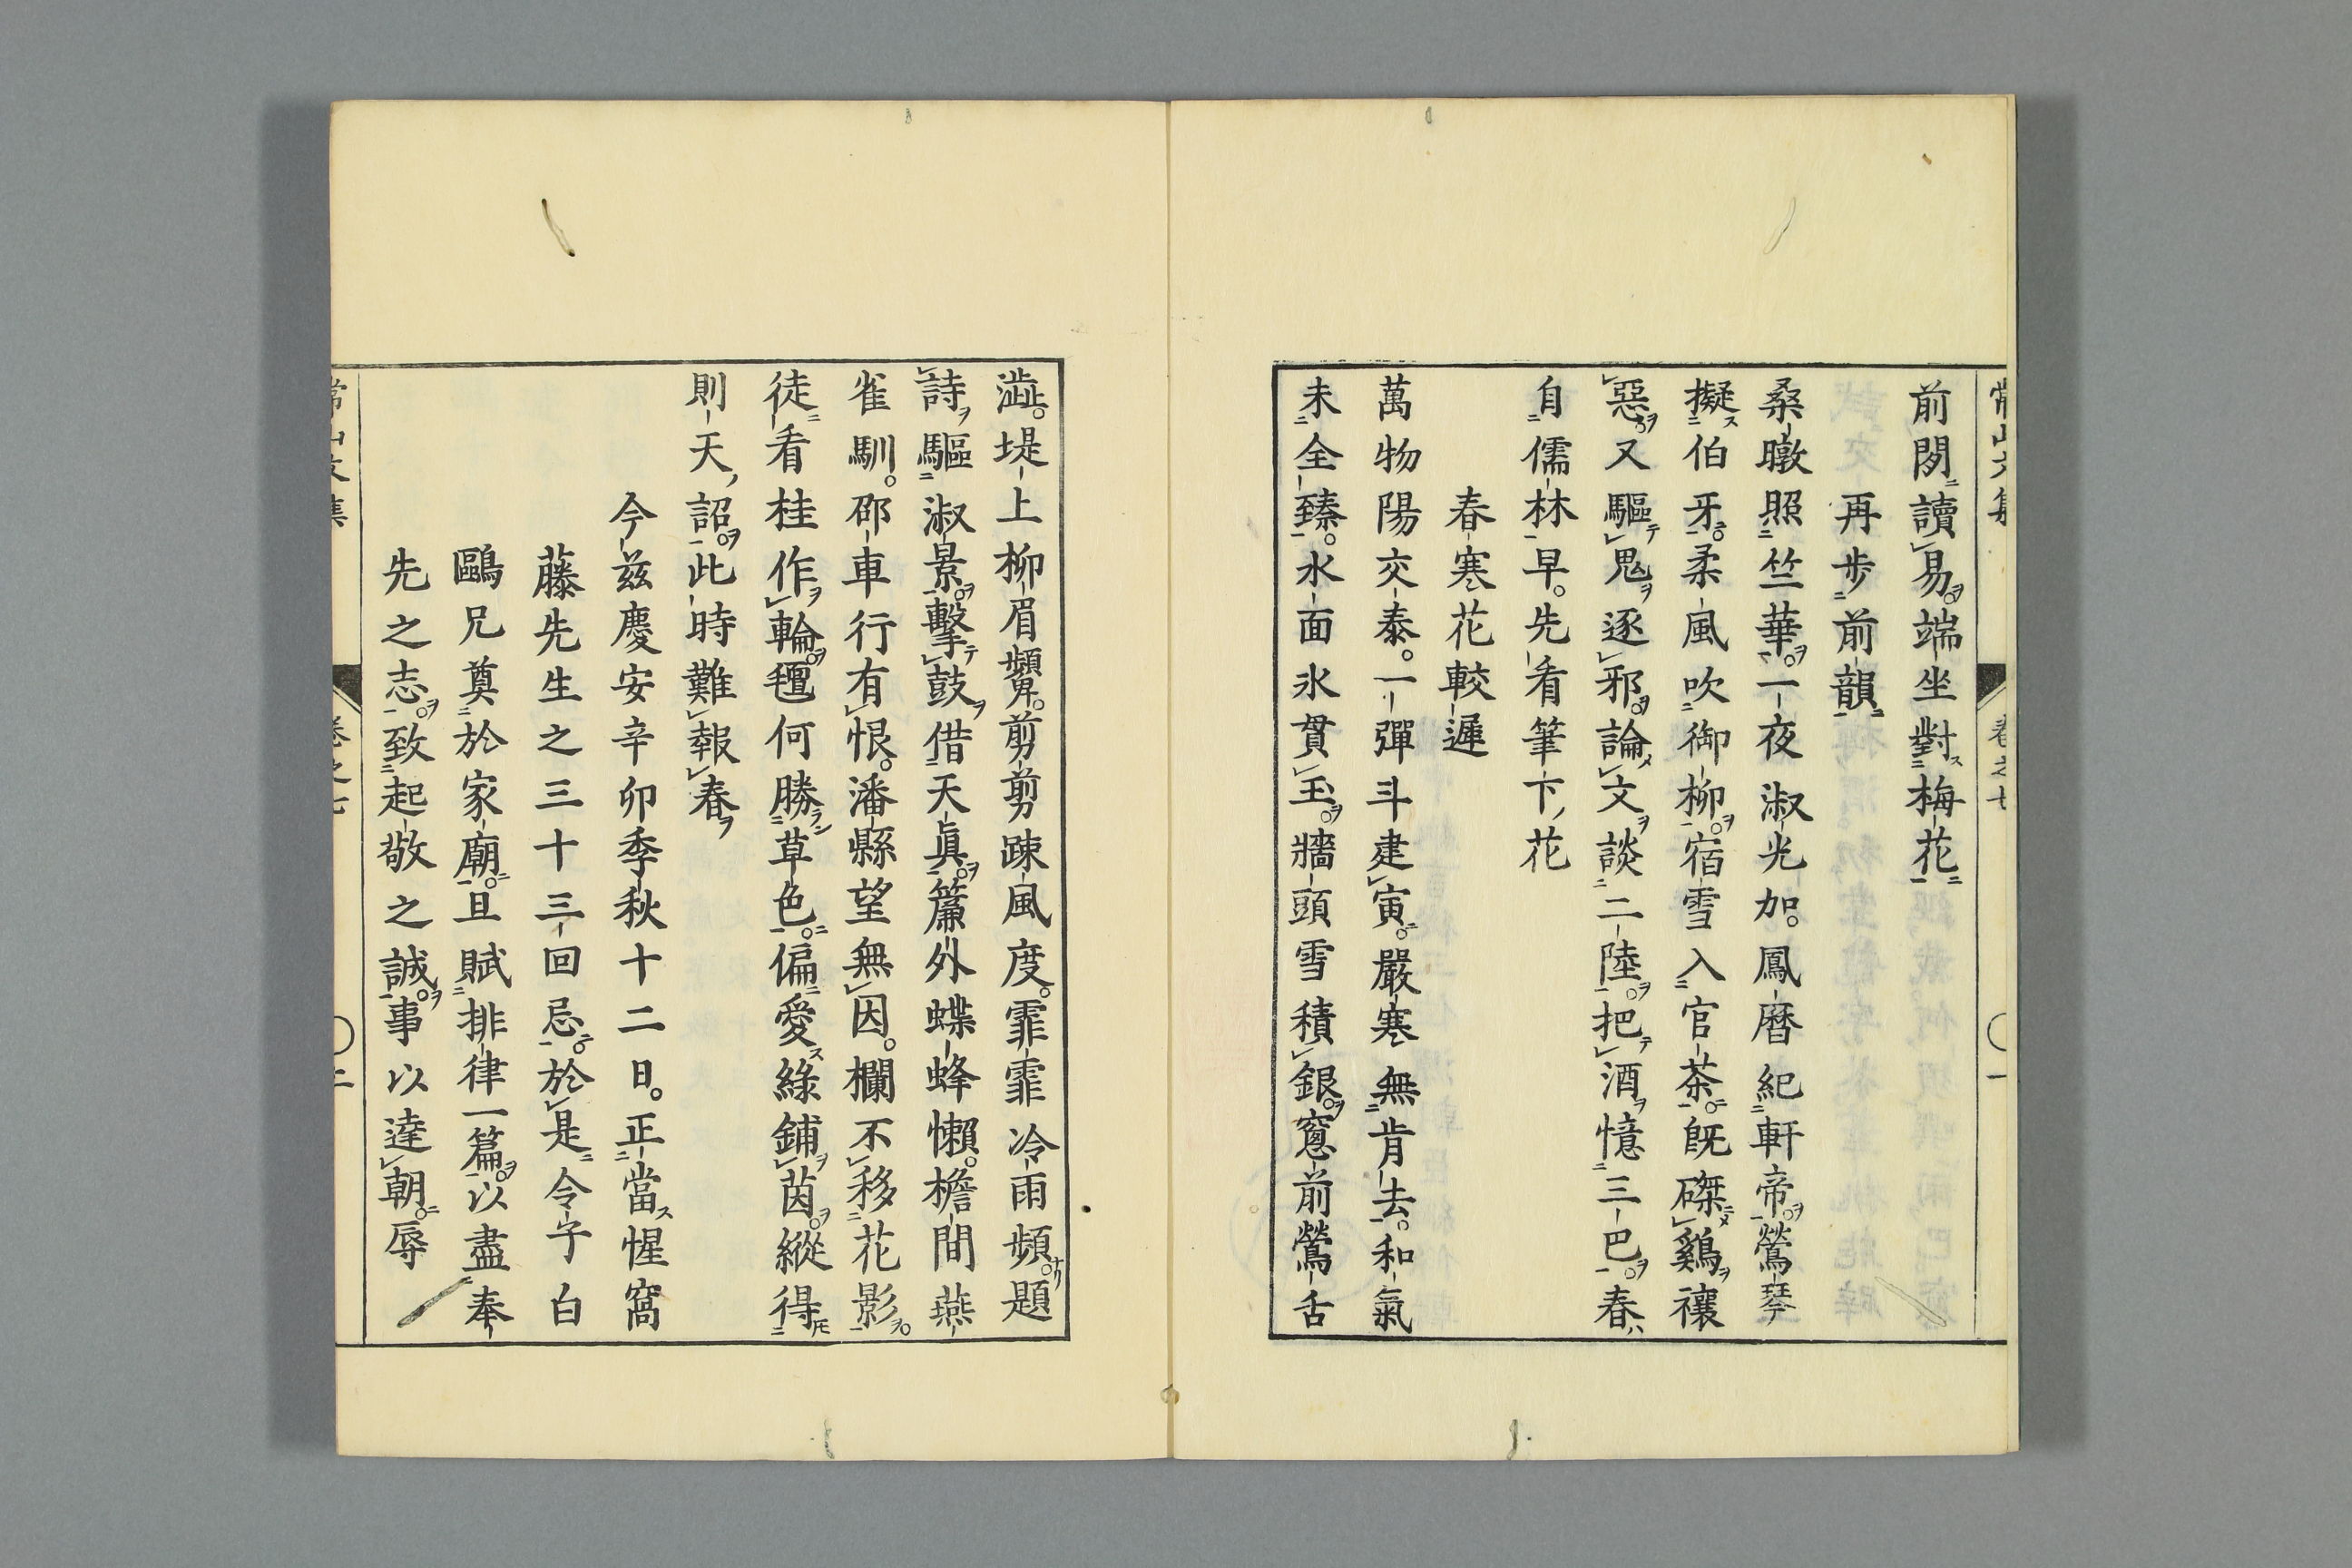 前閔讀易端坐對梅花
再步前韻
桑暾照竺華一夜淑光加。鳳曆紀軒帝鶯琴
擬伯牙柔風吹御柳宿雪入官茶既磔鷄禳
惡又驅鬼逐邪論文談二陸把酒憶三巴春
自儒林早。先看筆下花
春寒花較遲
萬物陽交泰。一彈斗建寅。嚴寒無肯去。和氣
未全臻。水面氷貫玉牆頭雪積銀窻前鶯舌
澁。堤上柳眉顰。剪剪疎風度。霏霏冷雨頻。題
詩驅淑景擊鼓借天眞簾外蝶蜂懶。檐間燕
雀馴。邵車行有恨。潘縣望無因。欄不移花影
徒看桂作輪氊何勝草色。偏愛綠鋪茵縱得
則天詔此時難報春
今茲慶安辛卯季秋十二日。正當惺窩
藤先生之三十三回忌於是令子白
鷗兄奠於家廟。且賦排律一篇以盡奉
先之志致起敬之誠事以達朝辱